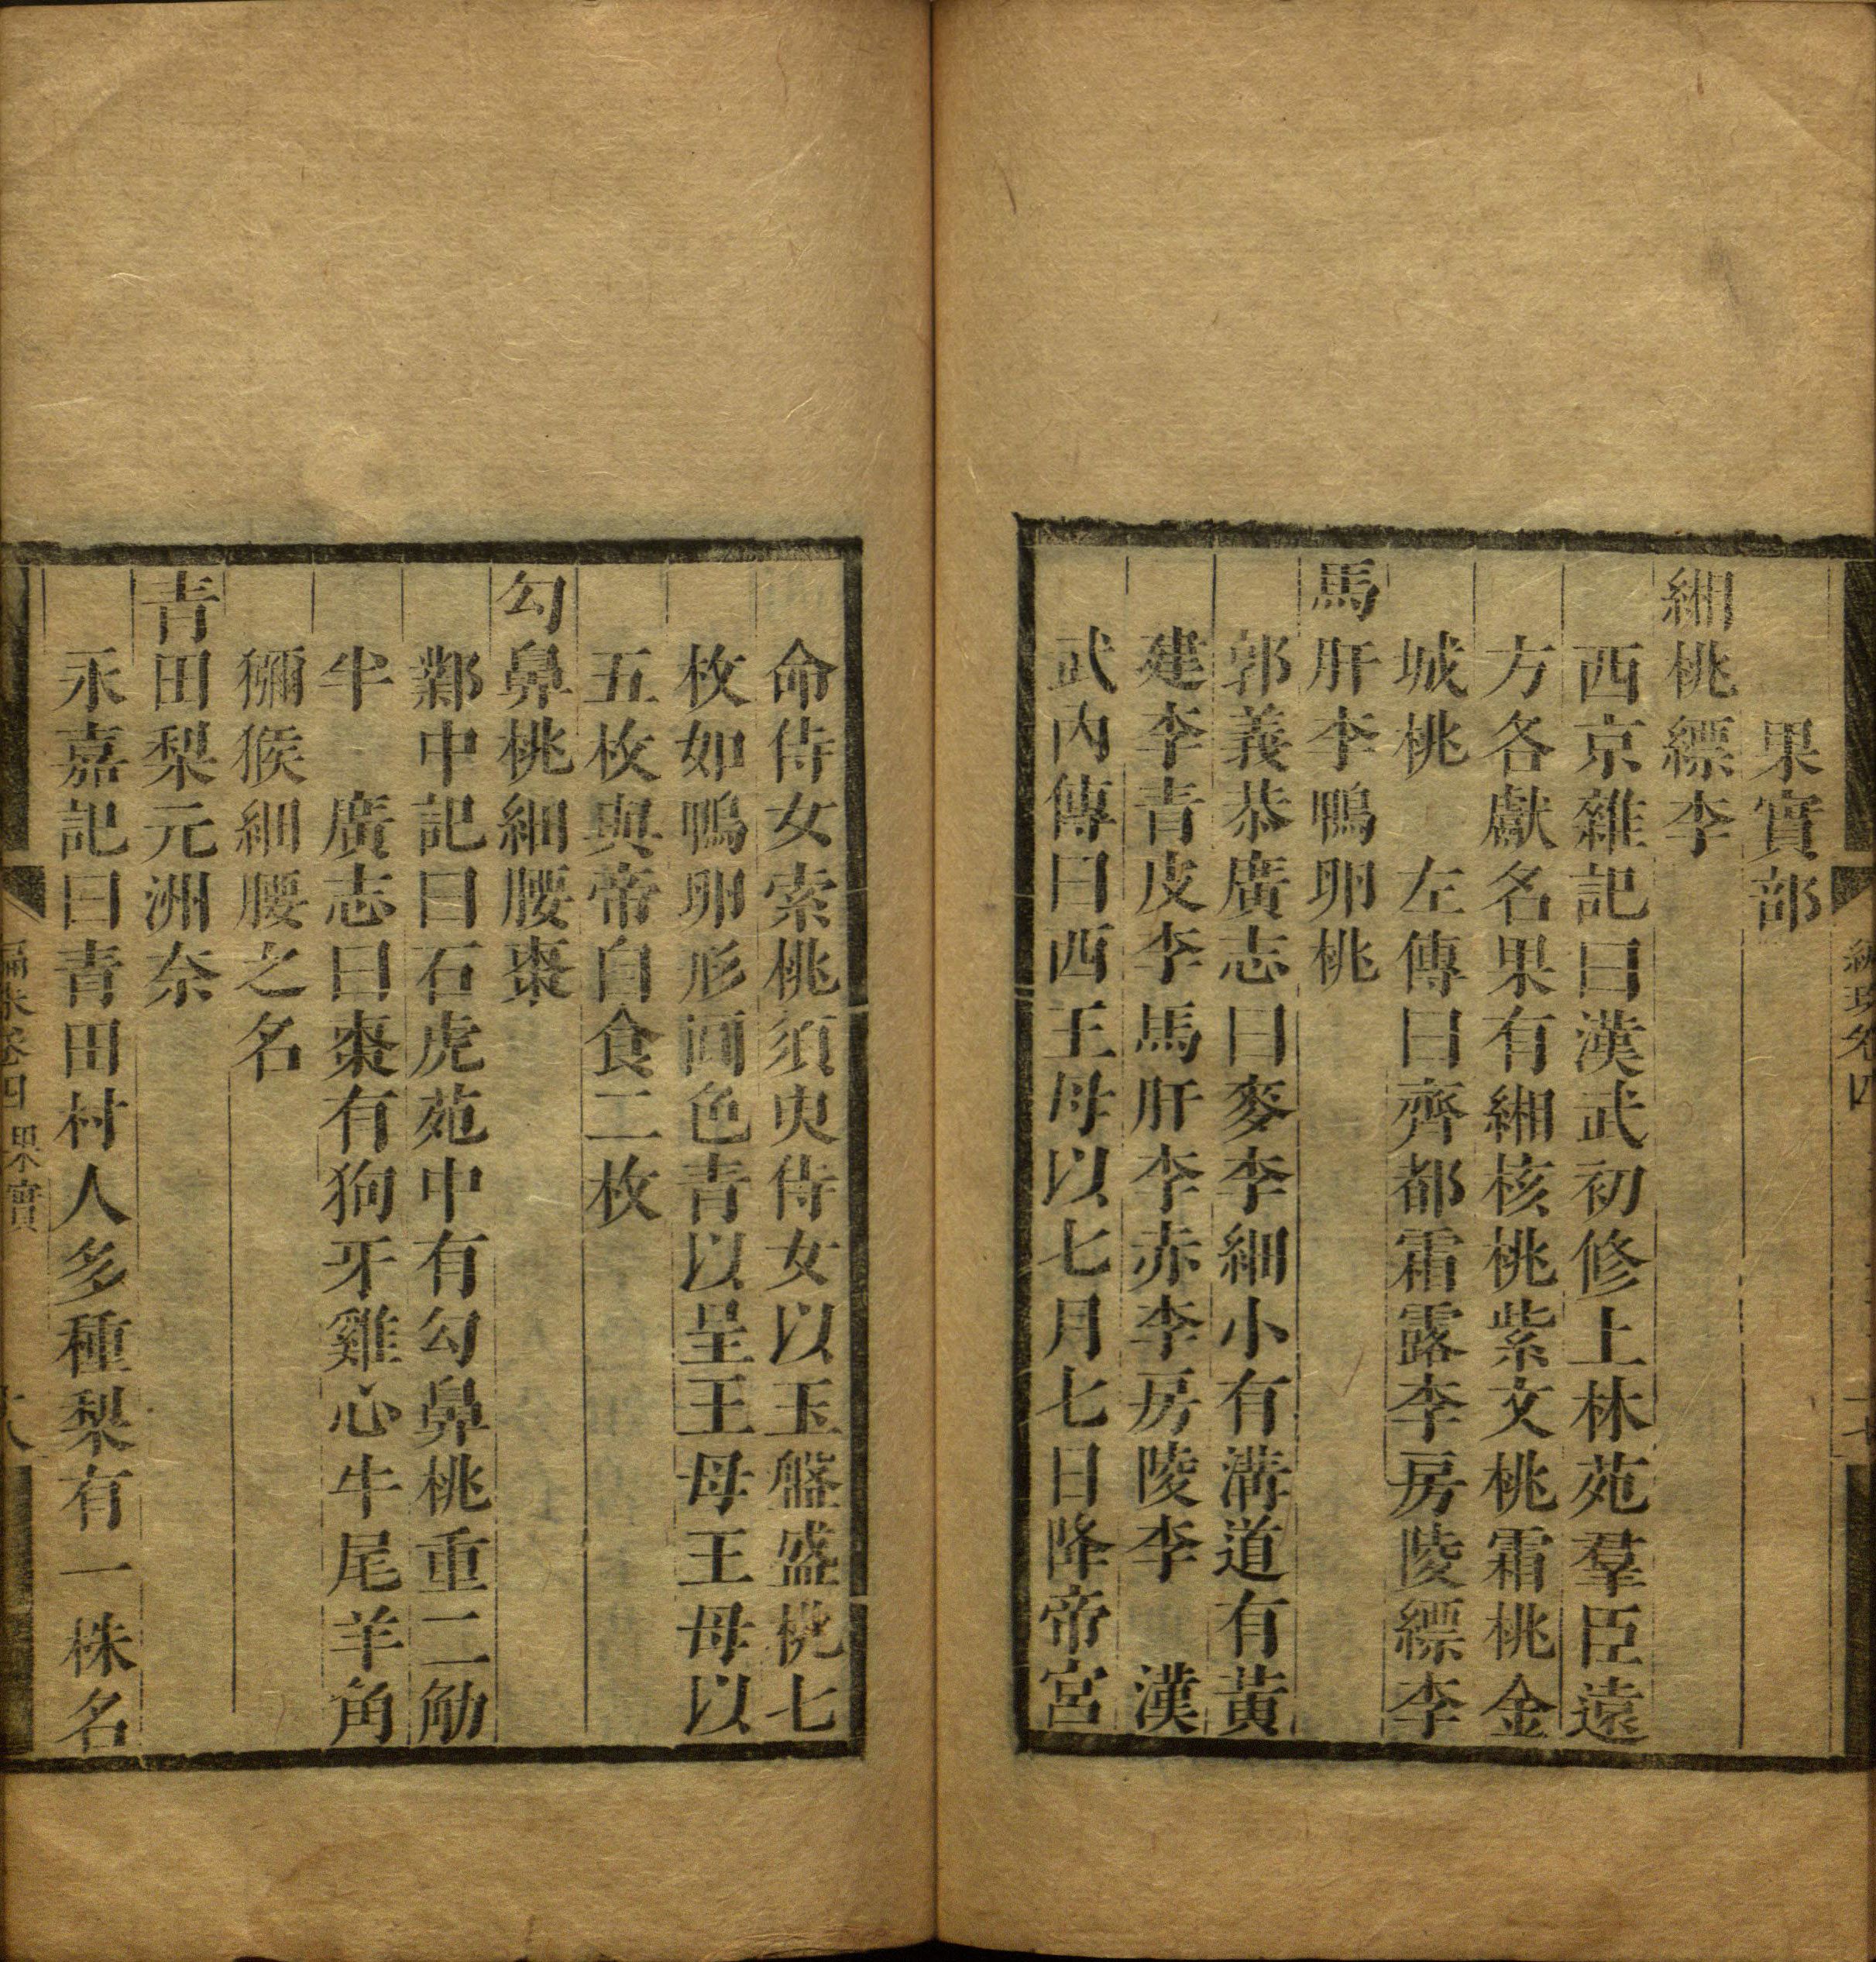 果實部
緗桃縹李
西京雜記曰漢武初修上林苑羣臣遠
方各獻名果有緗核桃紫文桃霜桃金
城桃　左傳曰齊都霜露李房陵縹李
馬肝李鴨卵桃
郭義恭廣志曰麥李細小有溝道有黃
建李青皮李馬肝李赤李房陵李　漢
武內傳曰西王母以七月七日降帝宮
命侍女索桃須臾侍女以玉盤盛桃七
枚如鴨卵形圓色青以呈王母王母以
五枚與帝自食二枚
勾鼻桃細腰棗
鄴中記曰石虎苑中有勾鼻桃重二觔
半　廣志曰棗有狗牙雞心牛尾羊角
獼猴細腰之名
青田梨元洲柰
永嘉記曰青田村人多種梨有一株名
編珠卷四 果實